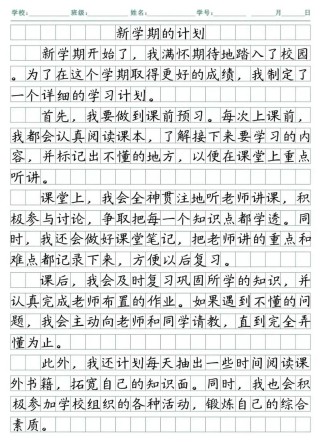 学校：班级：姓名：学号：月日
新学期的计划
新学期开始了，我满怀期待地踏入了校园
。为了在这个学期取得更好的成绩，我制定了
一个详细的学习计划。
首先，我要做到课前预习。每次上课前，
我都会认真阅读课本，了解接下来要学习的内
容，并标记出不懂的地方，以便在课堂上重点
听讲。
课堂上，我会全神贯注地听老师讲课，积
极参与讨论，争取把每一个知识点都学透。同
时，我还会做好课堂笔记，把老师讲的重点和
难点都记录下来，方便以后复习。
课后，我会及时复习巩固所学的知识，并
认真完成老师布置的作业。如果遇到不懂的问
题，我会主动向老师和同学请教，直到完全弄
懂为止。
此外，我还计划每天抽出一些时间阅读课
外书籍，拓宽自己的知识面。同时，我也会积
极参加学校组织的各种活动，锻炼自己的综合
素质。